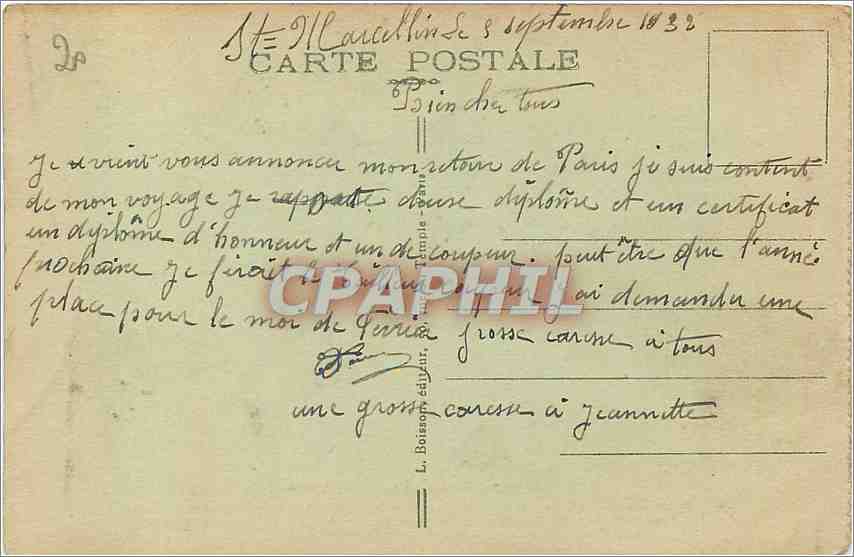 Ste Marcellin Le 5 septembre 1932
20
CARTE POSTALE
Bien cher tous
Je vient vous annoncer mon retour de Paris je suis content
de mon voyage je rapporte deuse diplôme et un certificat
un diplôme d'honneur et un de coupeur. peut être que l'anné
prochaine je ferait le tailleur coupeur j'ai demander une
place pour le moi de Fevrier grosse caresse a tous
une grosse caresse a Jeannette
L. Boisson, éditeur, Temple - Paris
CPAPHIL